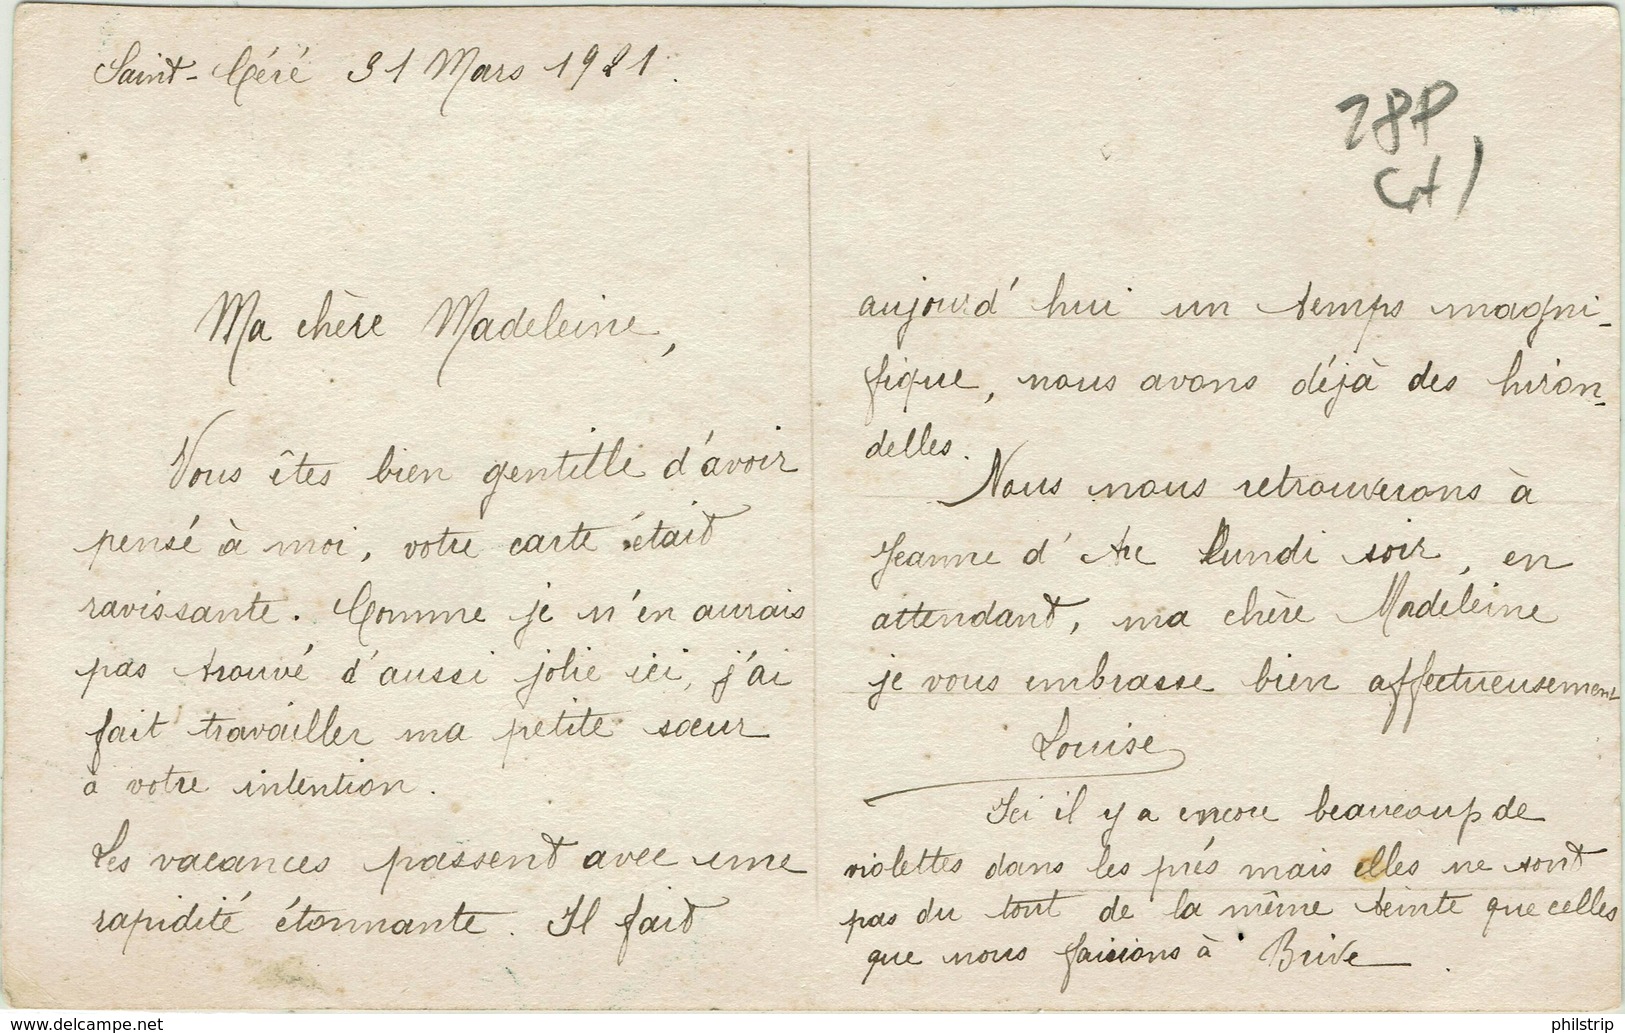 Saint-Céré 31 Mars 1921.
Ma chère Madeleine,
Vous êtes bien gentille d'avoir
pensé à moi, votre carte était
ravissante. Comme je n'en aurais
pas trouvé d'aussi jolie ici, j'ai
fait travailler ma petite sœur
à votre intention.
Les vacances passent avec une
rapidité étonnante. Il fait
28P
aujourd'hui un temps magni-
fique, nous avons déjà des hiron-
delles.
Nous nous retrouverons à
Jeanne d'Arc Lundi soir, en
attendant, ma chère Madeleine
je vous embrasse bien affectueusement
Louise
Ici il y a encore beaucoup de
violettes dans les prés mais elles ne sont
pas du tout de la même teinte que celles
que nous faisions à Brive.
www.delcampe.net
philstrip